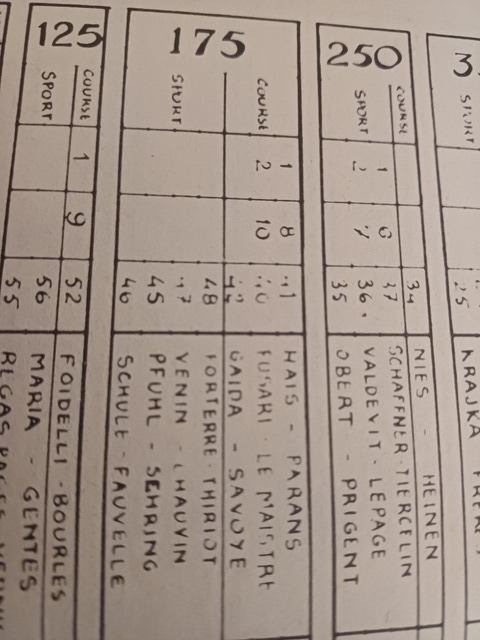 125
COURSE
SPORT
1 9 52 FOIDELLI - BOURLES
56 MARIA - GENTES
55
175
COURSE
SPORT
1 8 HAIS - PARANS
2 10 FUSARI - LE MAISTRE
GAIDA - SAVOYE
48 FORTERRE - THIRIOT
VENIN - CHAUVIN
45 PFUHL - SEHRING
46 SCHULE - FAUVELLE
250
COURSE
SPORT
34 NIES - HEINEN
1 6 37 SCHAFFNER - TIERCELIN
2 7 36. VALDEVIT - LEPAGE
35 OBERT - PRIGENT
SPORT
25 KRAJKA